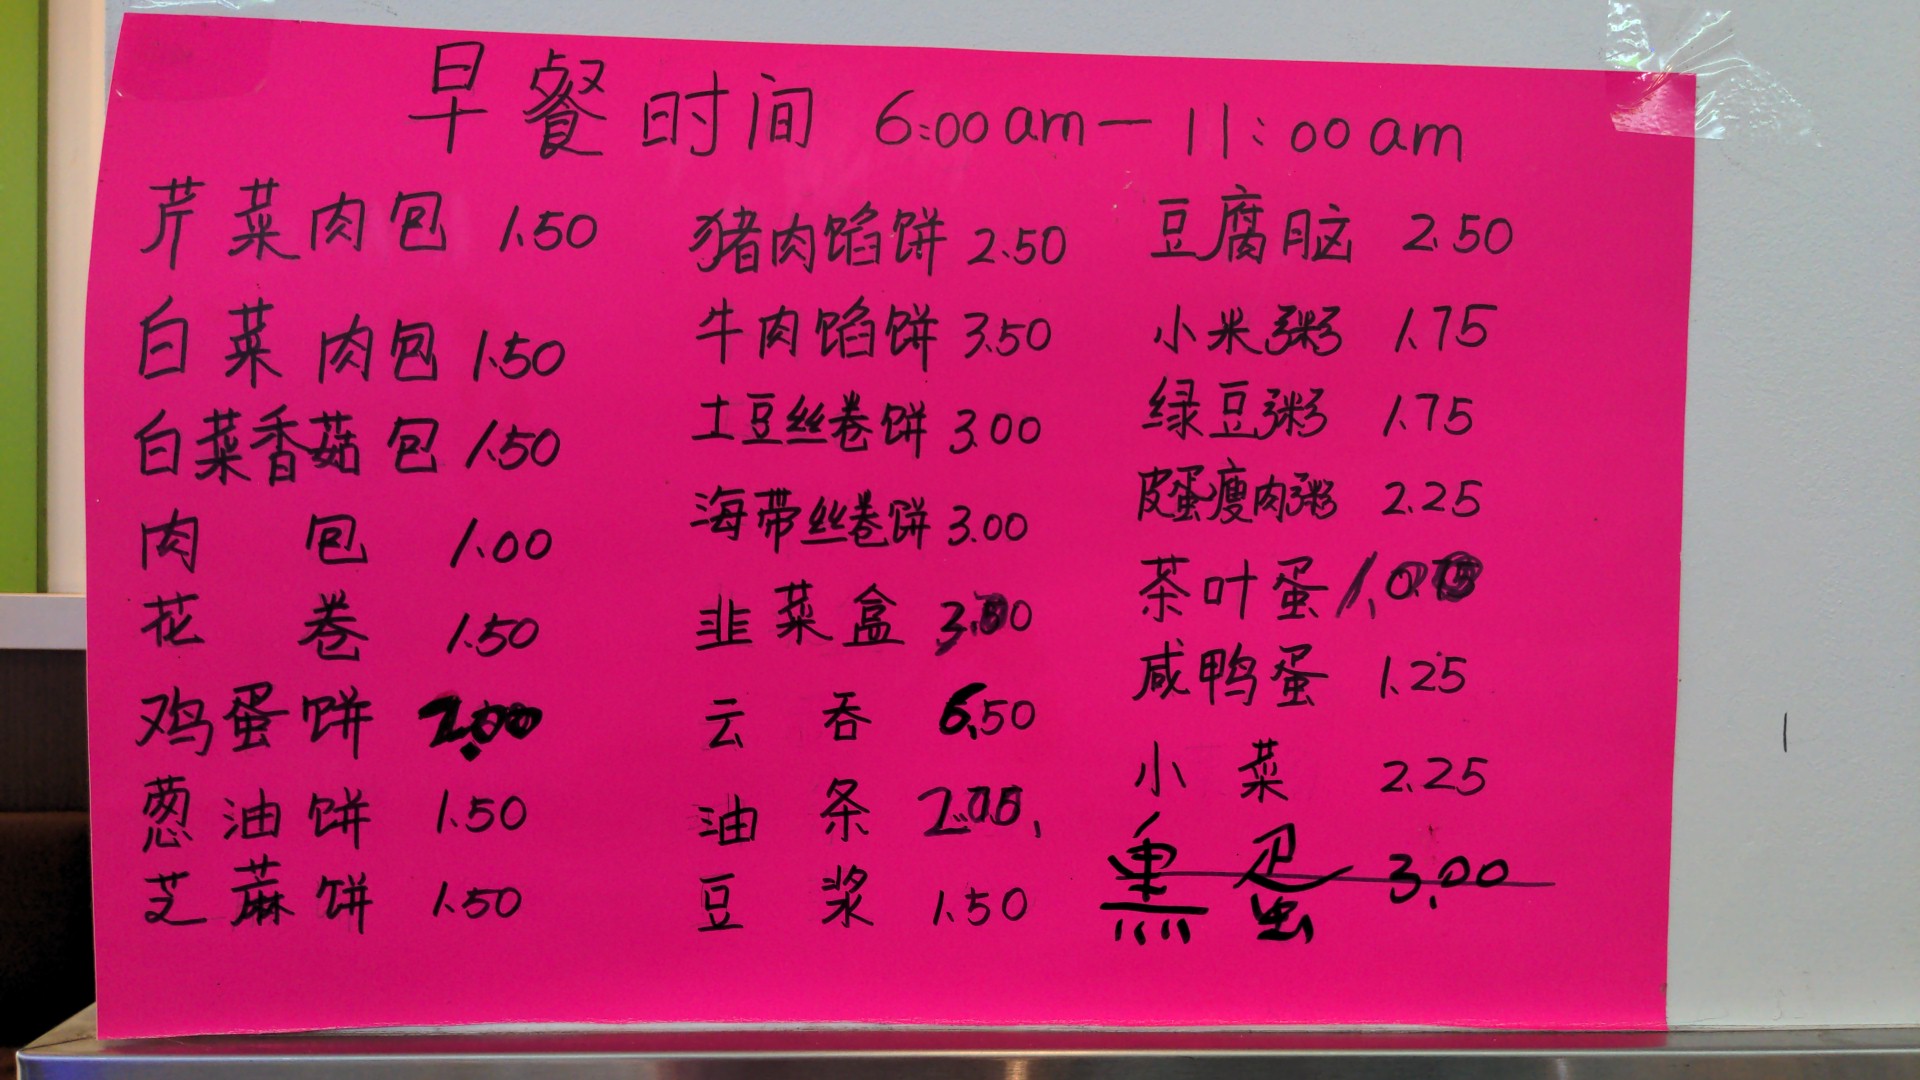 早餐时间 6:00am—11:00am
芹菜肉包 1.50
白菜肉包 1.50
白菜香菇包 1.50
肉包 1.00
花卷 1.50
鸡蛋饼 2.00
葱油饼 1.50
芝蔴饼 1.50
猪肉馅饼 2.50
牛肉馅饼 3.50
土豆丝卷饼 3.00
海带丝卷饼 3.00
韭菜盒
云吞 6.50
油条
豆浆 1.50
豆腐脑 2.50
小米粥 1.75
绿豆粥 1.75
皮蛋瘦肉粥 2.25
茶叶蛋
咸鸭蛋 1.25
小菜 2.25
熏蛋 3.00